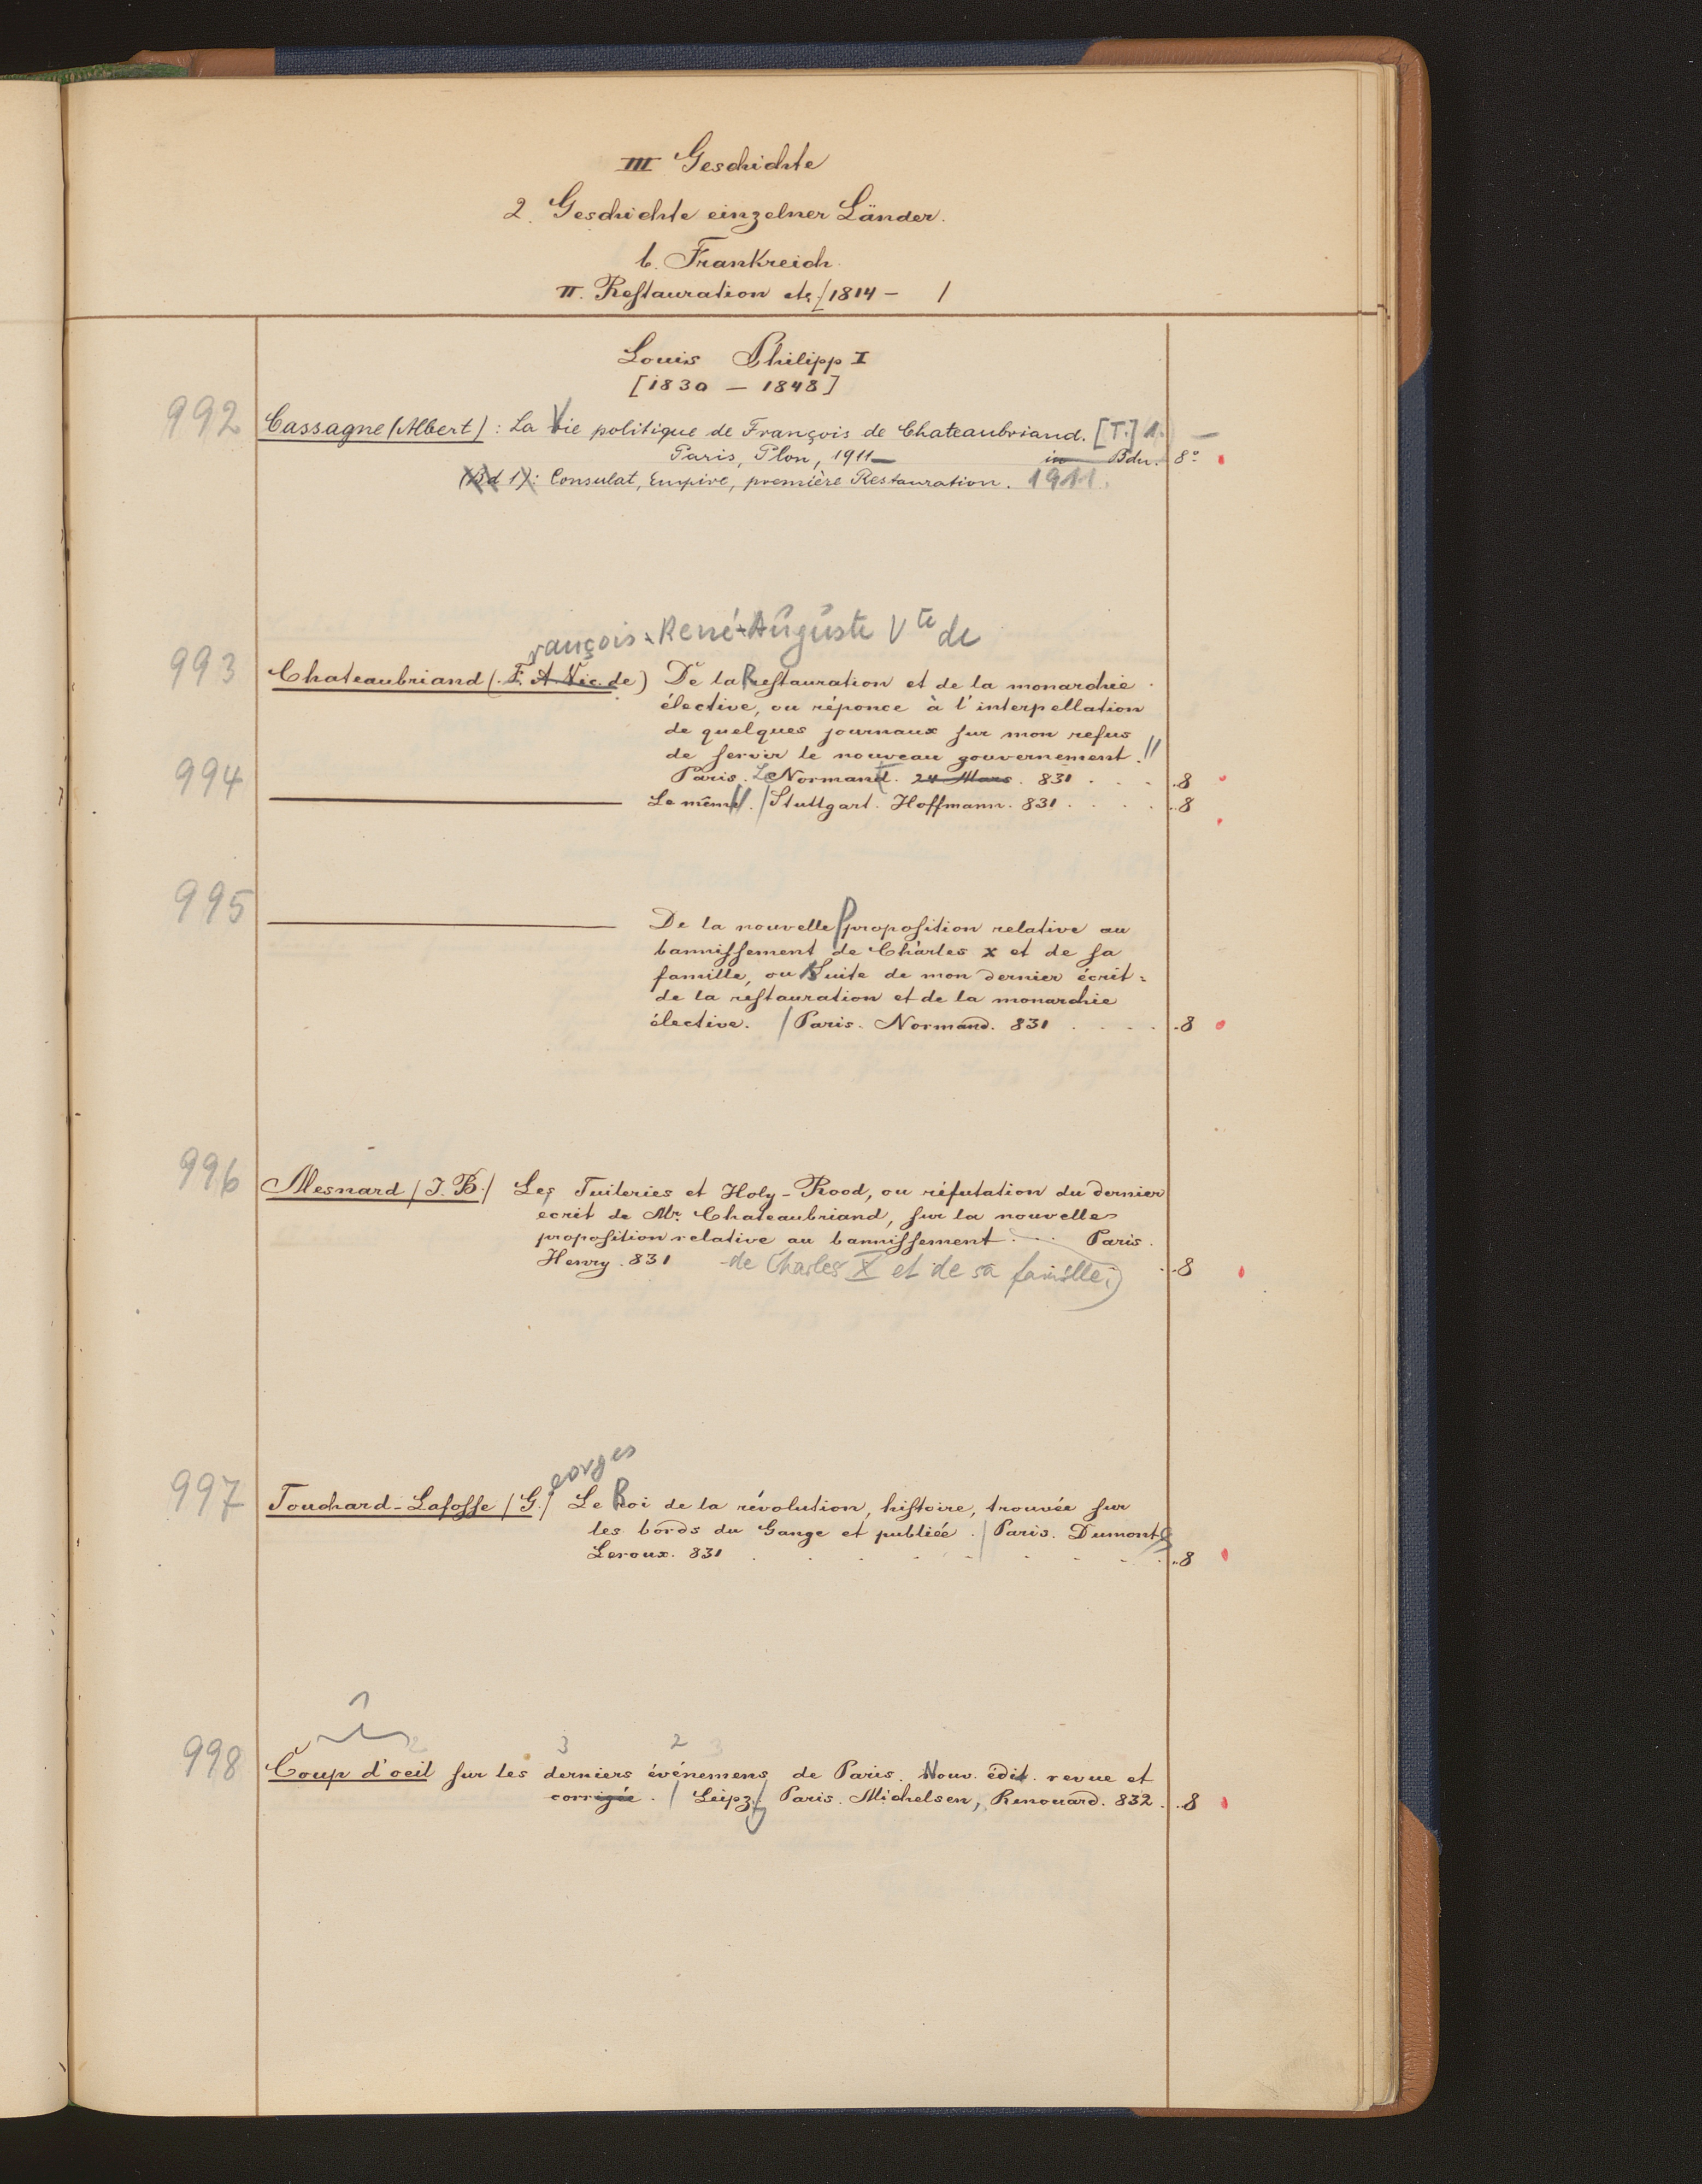 III Geschichte
2. Geschichte einzelner Länder.
b. Frankreich
II. Restauration etc. [1814 – ]
Louis Philipp I
[1830 – 1848]
992 Cassagne (Albert): La Vie politique de François de Chateaubriand. [T.] 1. –
Paris, Plon, 1911– in Bdn. 8º
(Bd 1): Consulat, Empire, première Restauration. 1911.
rançois-René-Auguste Vte de
993 Chateaubriand (F. A. Vic. de) De la Restauration et de la monarchie
élective, ou réponce à l'interpellation
de quelques journaux sur mon refus
de servir le nouveau gouvernement.
994 Paris. Le Normant. 24 Mars. 831 . . . 8
Le même. / Stuttgart. Hoffmann. 831 . . . . 8
995 De la nouvelle Proposition relative au
bannissement de Charles X et de sa
famille, ou Suite de mon dernier écrit:
de la restauration et de la monarchie
élective. / Paris. Normand. 831 . . . . 8
996 Mesnard (J. B.) Les Tuileries et Holy-Rood, ou réfutation du dernier
ecrit de Mr. Chateaubriand, sur la nouvelle
proposition relative au bannissement ... Paris.
Henry. 831 de Charles X et de sa famille. 8
eorges
997 Touchard-Lafosse (G.) Le Roi de la révolution, histoire, trouvée sur
les bords du Gange et publiée. / Paris. Dumont &
Leroux. 831 . . . . . . . . 8
1
2 3 2 3
998 Coup d'oeil sur les derniers événemens de Paris. Nouv. édit. revue et
corrigée. / Leipz. Paris. Michelsen, Renouard. 832. 8